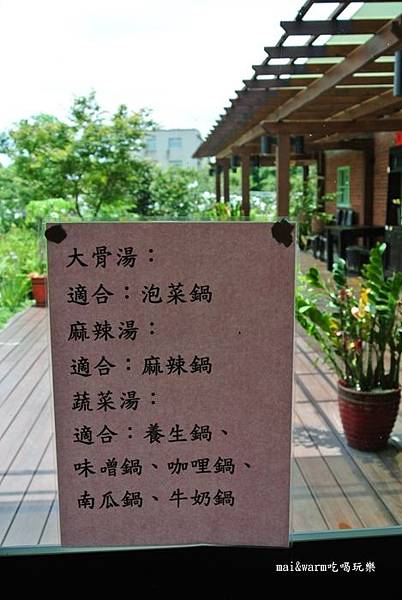 大骨湯：
適合：泡菜鍋
麻辣湯：
適合：麻辣鍋
蔬菜湯：
適合：養生鍋、
味噌鍋、咖哩鍋、
南瓜鍋、牛奶鍋
mai&warm吃喝玩樂